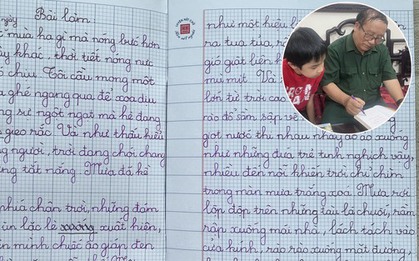 Bài làm
mùa hạ gì mà nóng bức hơn
khác, thời tiết nóng nực
Tôi cầu mong một
ghé ngang qua để xoa dịu
sự ngột ngạt mà hè đang
gieo rắc. Và như thấu hiểu
người, trời đang chói chang
tắt nắng. Mưa đã
phía chân trời, những đám
xuống xuất hiện,
mình chiếc áo giáp đen
như một hiệu
ra tua tủa,
gió giật liên
mù mịt. Và
từ trời cao
rào đổ sầm sập
giọt nước thi nhau nhảy ào ào xuống
như những đứa trẻ tinh nghịch vậy,
nhiều đến nỗi khiến trời chìm
trong màn mưa trắng xoá. Mưa rơi
lộp độp trên những tàu lá chuối, rầm
rập xuống mái nhà, lách tách vào
cửa kính, rào rào xuống mặt đường,